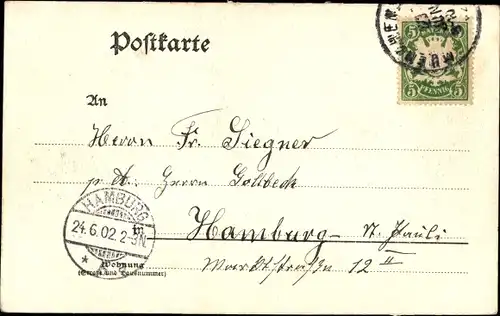 Postkarte
BAYERN
5 PFENNIG 5
MUENCHEN
An
Herrn Fr. Siegner
p. A. Herrn Gollbeck
HAMBURG
24.6.02. 2-3N.
*
in
Hamburg - St. Pauli
Wohnung
(Straße und Hausnummer)
Marktstraße 12 II